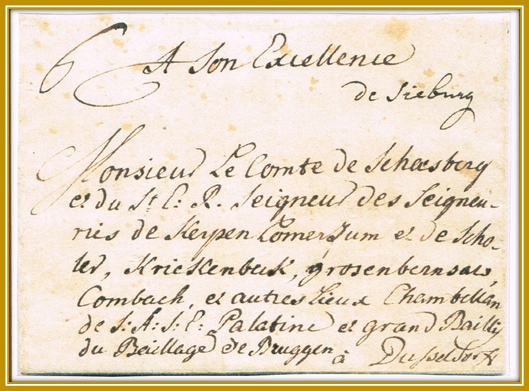 6 A Son Excellence
de Sieburg
Monsieur Le Comte de Schaesberg
et du St: E: R. Seigneur des Seigneu-
ries de Kerpen Lomersum et de Scho-
ler, Krieckenbeck, grosenbernsau
Combach, et autres Lieux Chambellan
de S: A: S: E: Palatine et grand Bailly
du Beillage de Bruggen à Dusseldorf